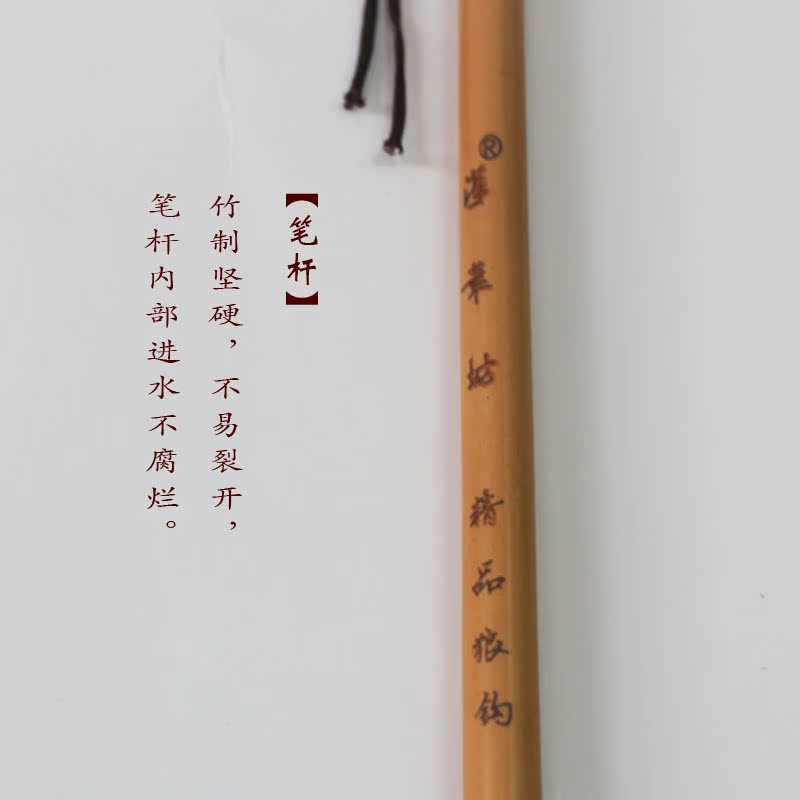 【笔杆】
竹制坚硬，不易裂开，
笔杆内部进水不腐烂。
®
坊
精品狼钩